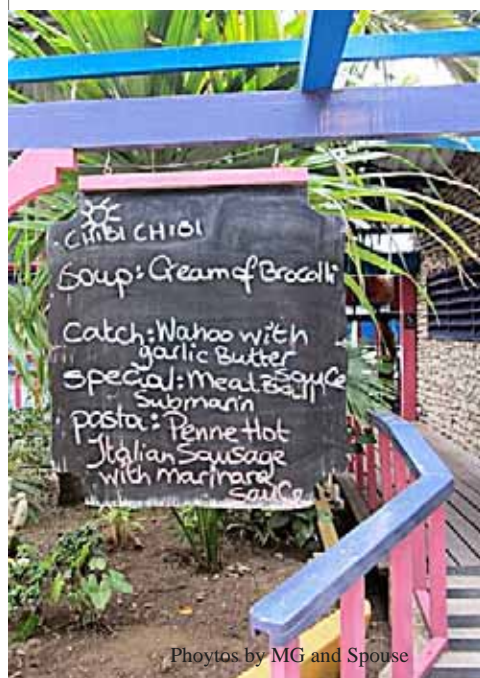 CHIBI CHIBI
Soup: Cream of Brocolli
Catch: Wahoo with
garlic Butter
sauce
special: Meat Ball
Submarin
pasta: Penne Hot
Italian Sausage
with marinara
sauce
Phoytos by MG and Spouse